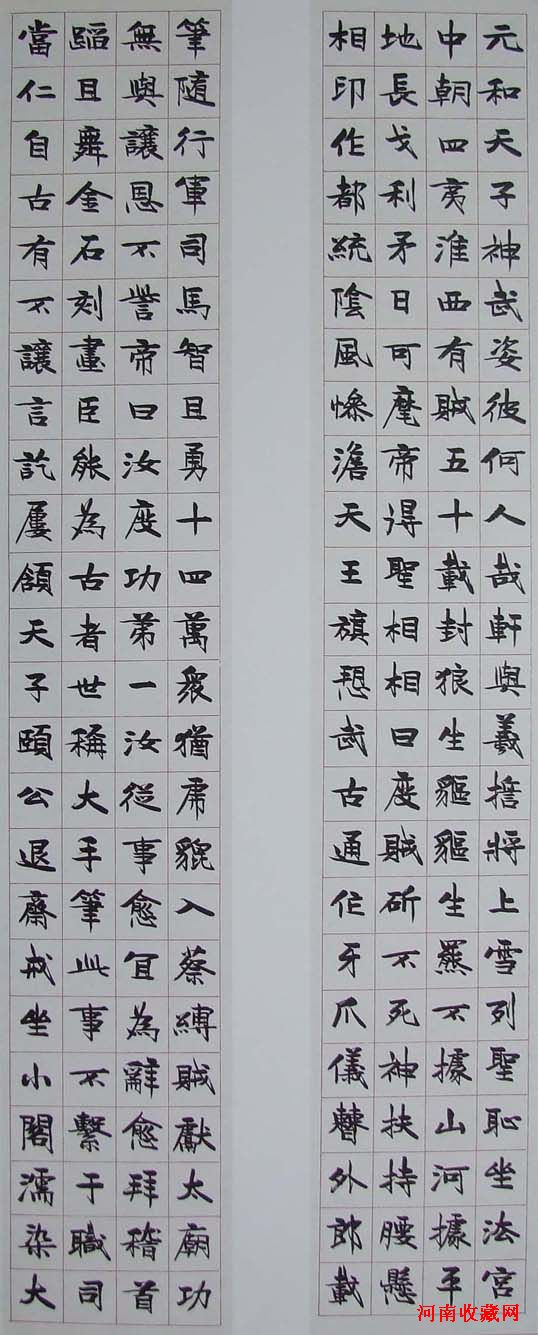 元和天子神武姿彼何人哉軒與羲誓將上雪列聖恥坐法宮
中朝四夷淮西有賊五十載封狼生貙貙生羆不據山河據平
地長戈利矛日可麾帝得聖相相曰度賊斫不死神扶持腰懸
相印作都統陰風慘澹天王旗愬武古通作牙爪儀曹外郎載
筆隨行軍司馬智且勇十四萬衆猶虎貔入蔡縛賊獻太廟功
無與讓恩不訾帝曰汝度功第一汝從事愈宜為辭愈拜稽首
蹈且舞金石刻畫臣能為古者世稱大手筆此事不繫于職司
當仁自古有不讓言訖屢頷天子頤公退齋戒坐小閣濡染大
河南收藏网